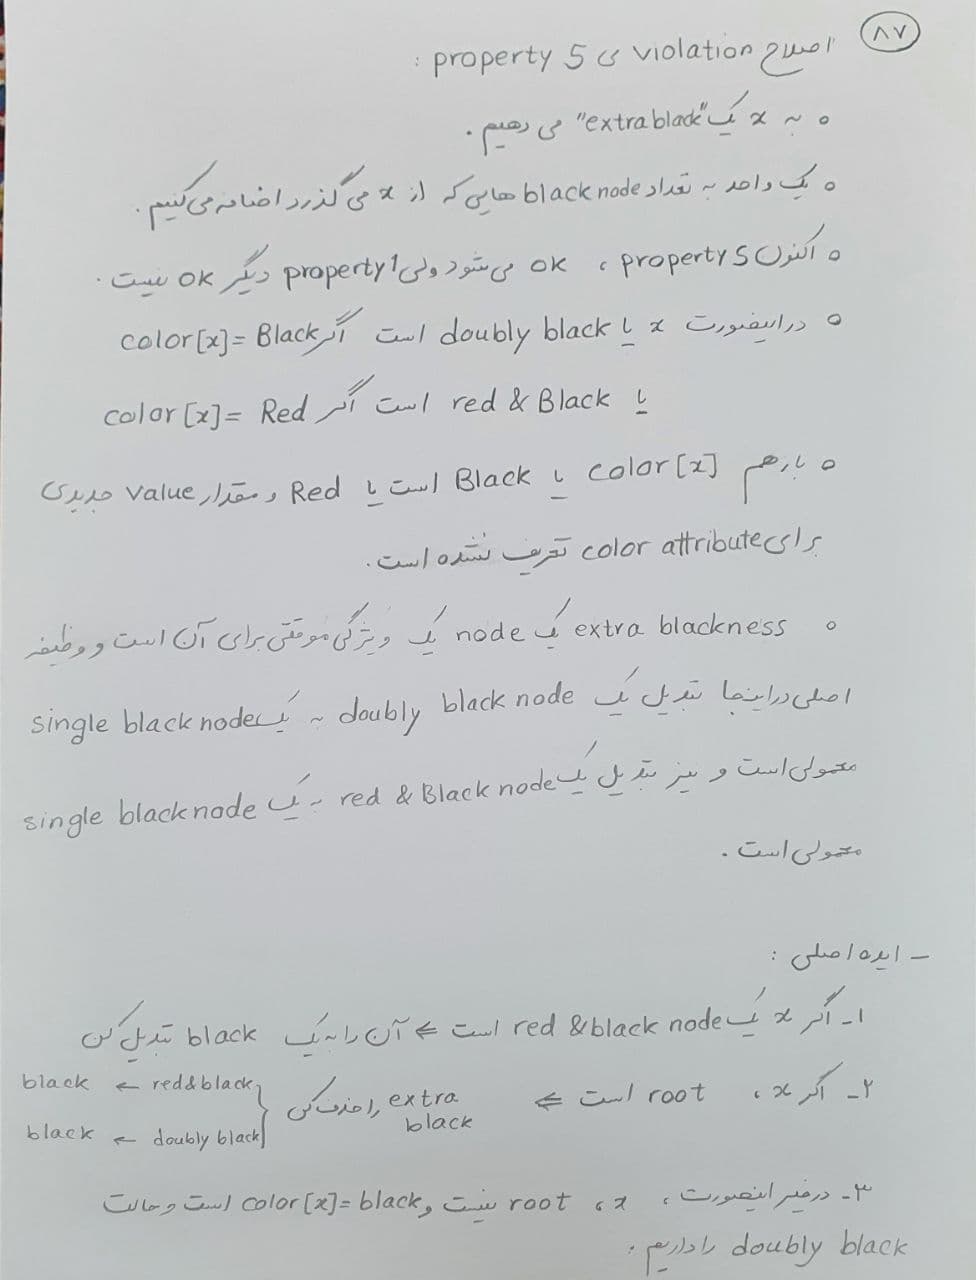 ۸۷
اصلاح violation ی property 5 :
o به x یک "extra black" می دهیم.
o یک واحد به تعداد black node هایی که از x می گذرد اضافه می کنیم.
o اکنون property 5 ، ok می شود ولی property 1 دیگر ok نیست.
o در اینصورت x یا doubly black است اگر color[x]= Black
یا red & Black است اگر color[x]= Red
o بازهم color[x] یا Black است یا Red و مقدار value جدیدی
برای color attribute تعریف نشده است.
o extra blackness یک node یک ویژگی موقتی برای آن است و وظیفه
اصلی در اینجا تبدیل یک doubly black node به یک single black node
معمولی است و نیز تبدیل یک red & Black node به یک single black node
معمولی است.
- ایده اصلی :
۱- اگر x یک red & black node است ⇐ آن را به یک black تبدیل کن
۲- اگر x ، root است ⇐ extra black را حذف کن { red & black ← black
doubly black ← black
۳- در غیر اینصورت ، x ، root نیست و color[x]= black است و حالت
doubly black را داریم :